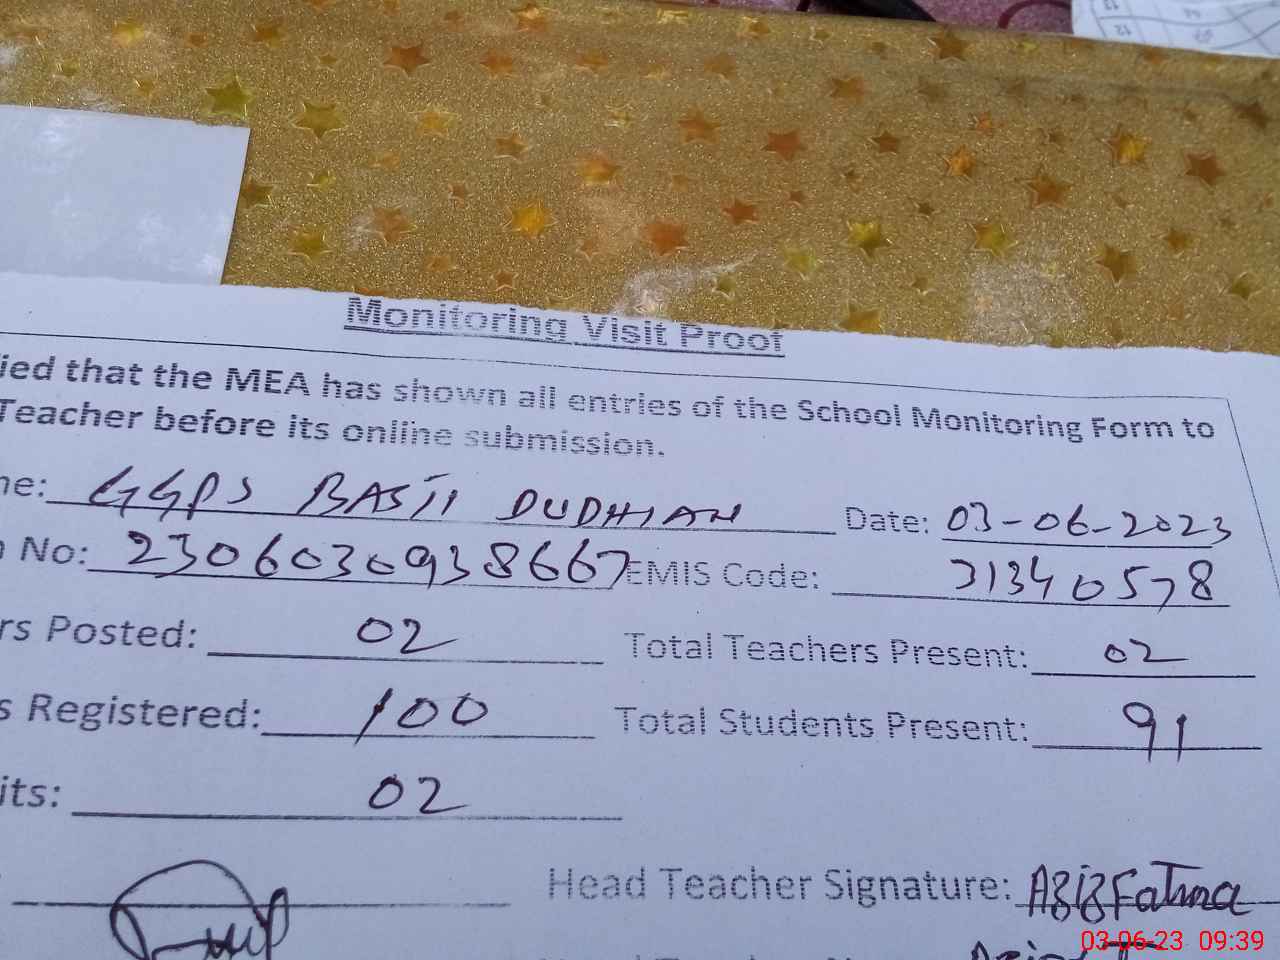 Monitoring Visit Proof
ied that the MEA has shown all entries of the School Monitoring Form to
Teacher before its online submission.
ne: GGPS BASTI DUDHIAN Date: 03-06-2023
No: 2306030938667 EMIS Code: 31340578
rs Posted: 02 Total Teachers Present: 02
s Registered: 100 Total Students Present: 91
its: 02
Head Teacher Signature: Aziz Fatma
03-06-23 09:39